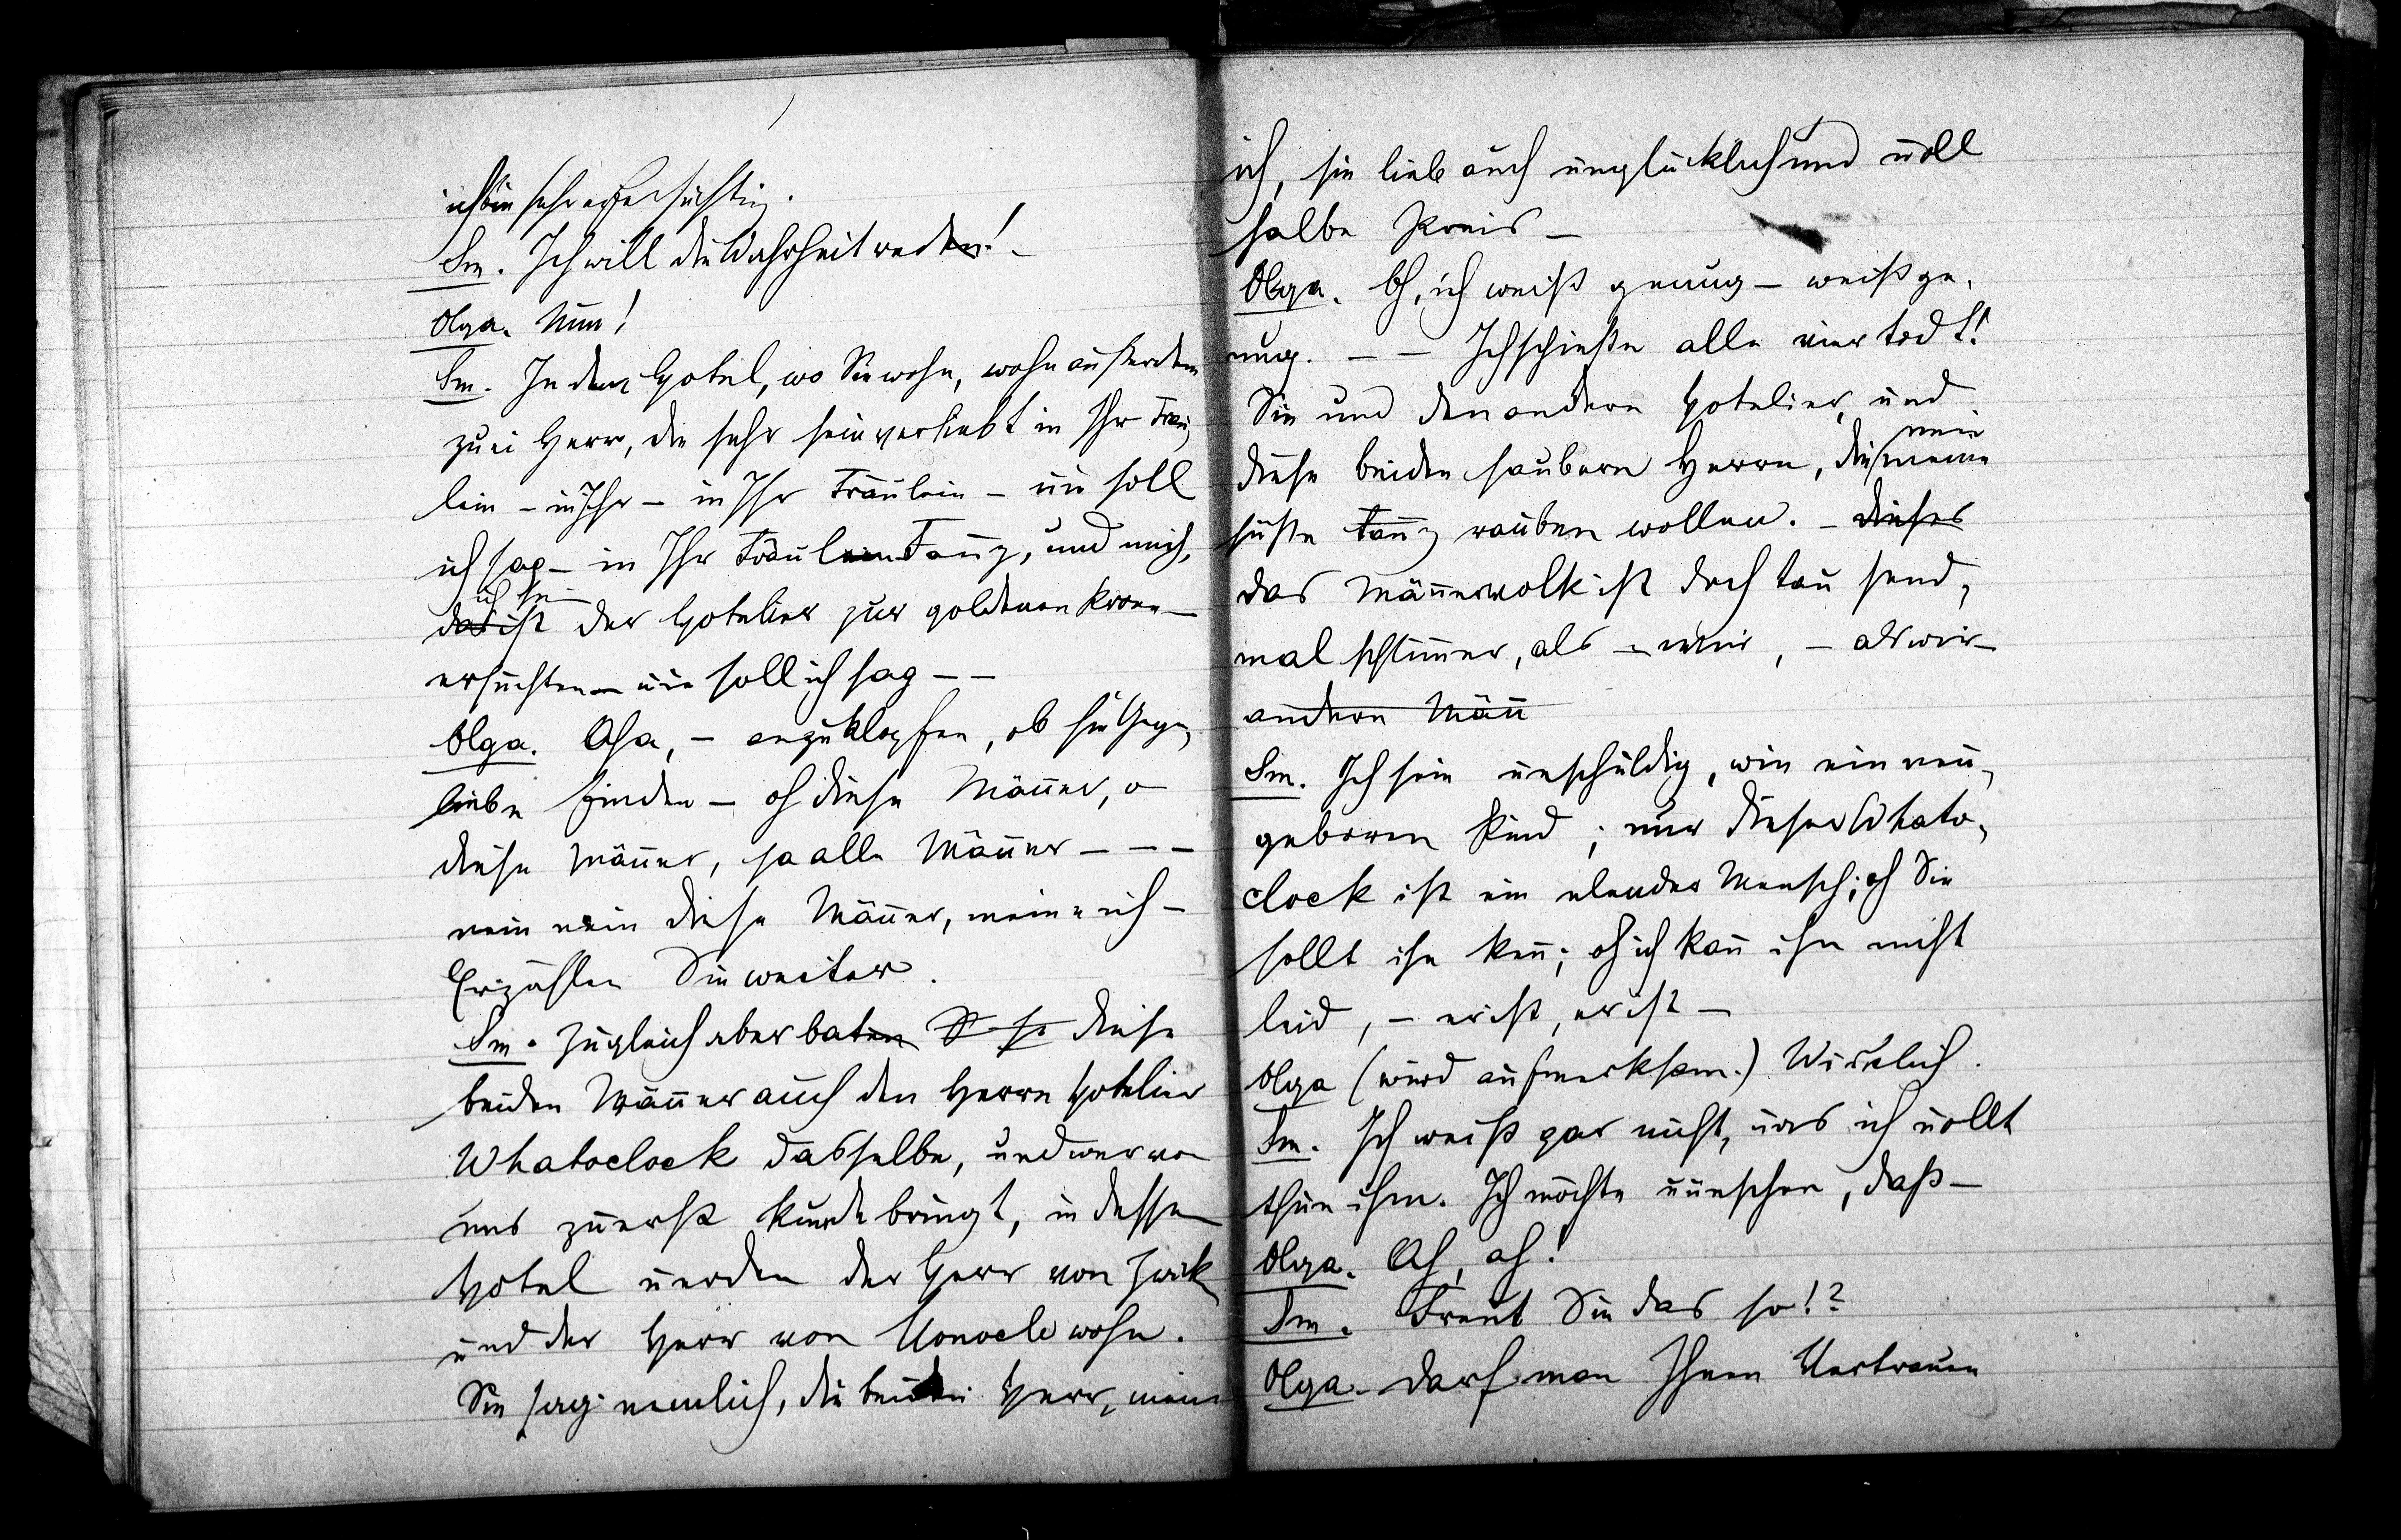 ich bin sehr eifersüchtig.
Sm. Ich will die Wahrheit reden! –
Olga. Nun!
Sm. In dem Hotel, wo Sie wohn, wohn außerdem
zwei Herr, die sehr sein verliebt in Ihr Fräu-
lein – in Ihr – in Ihr Fräulein – wie soll
ich sag – in Ihr Fräulein Fanny, und mich,
das ist
der Hotelier zur goldenen Krone –
ersuchten – wie soll ich sag – –
Olga. Aha, – anzuklopfen, ob sie Gegen-
liebe finden – oh diese Männer, o
diese Männer, ja alle Männer – – –
nein nein diese Männer, meine ich –
Erzählen Sie weiter.
Sm. Zugleich aber baten diese
beiden Männer auch den Herrn Hotelier
Whatoclock dasselbe, und wer von
uns zuerst Kunde bringt, in dessen
Hotel werden der Herr von Zwick
und der Herr von Monocle wohn.
Sie sag nemlich, die beiden Herr, mein
ich, sie lieb auch unglücklich und woll
halbe Preis –
Olga. Oh, ich weiß genug – weiß ge-
nug. – – Ich schieße alle vier todt!
Sie und den andern Hotelier, und
mir
diese beiden saubern Herrn, die meine
süße Fanny rauben wollen. – dieses
das Männervolk ist doch tausend-
mal schlimmer, als – wir, – als wir –
andern Männ
Sm. Ich sein unschuldig, wie ein neu-
geboren Kind; nur dieser Whato-
clock ist ein elender Mensch; oh Sie
sollt ihn kenn; oh ich kann ihn nicht
leid, – er ist, er ist –
Olga (wird aufmerksam.) Wirklich.
Sm. Ich weiß gar nicht, was ich wollt
thun ihm. Ich möchte wünschen, daß –
Olga. Ah, ah!
Sm. Freut Sie das so!?
Olga. Darf man Ihnen Vertrauen